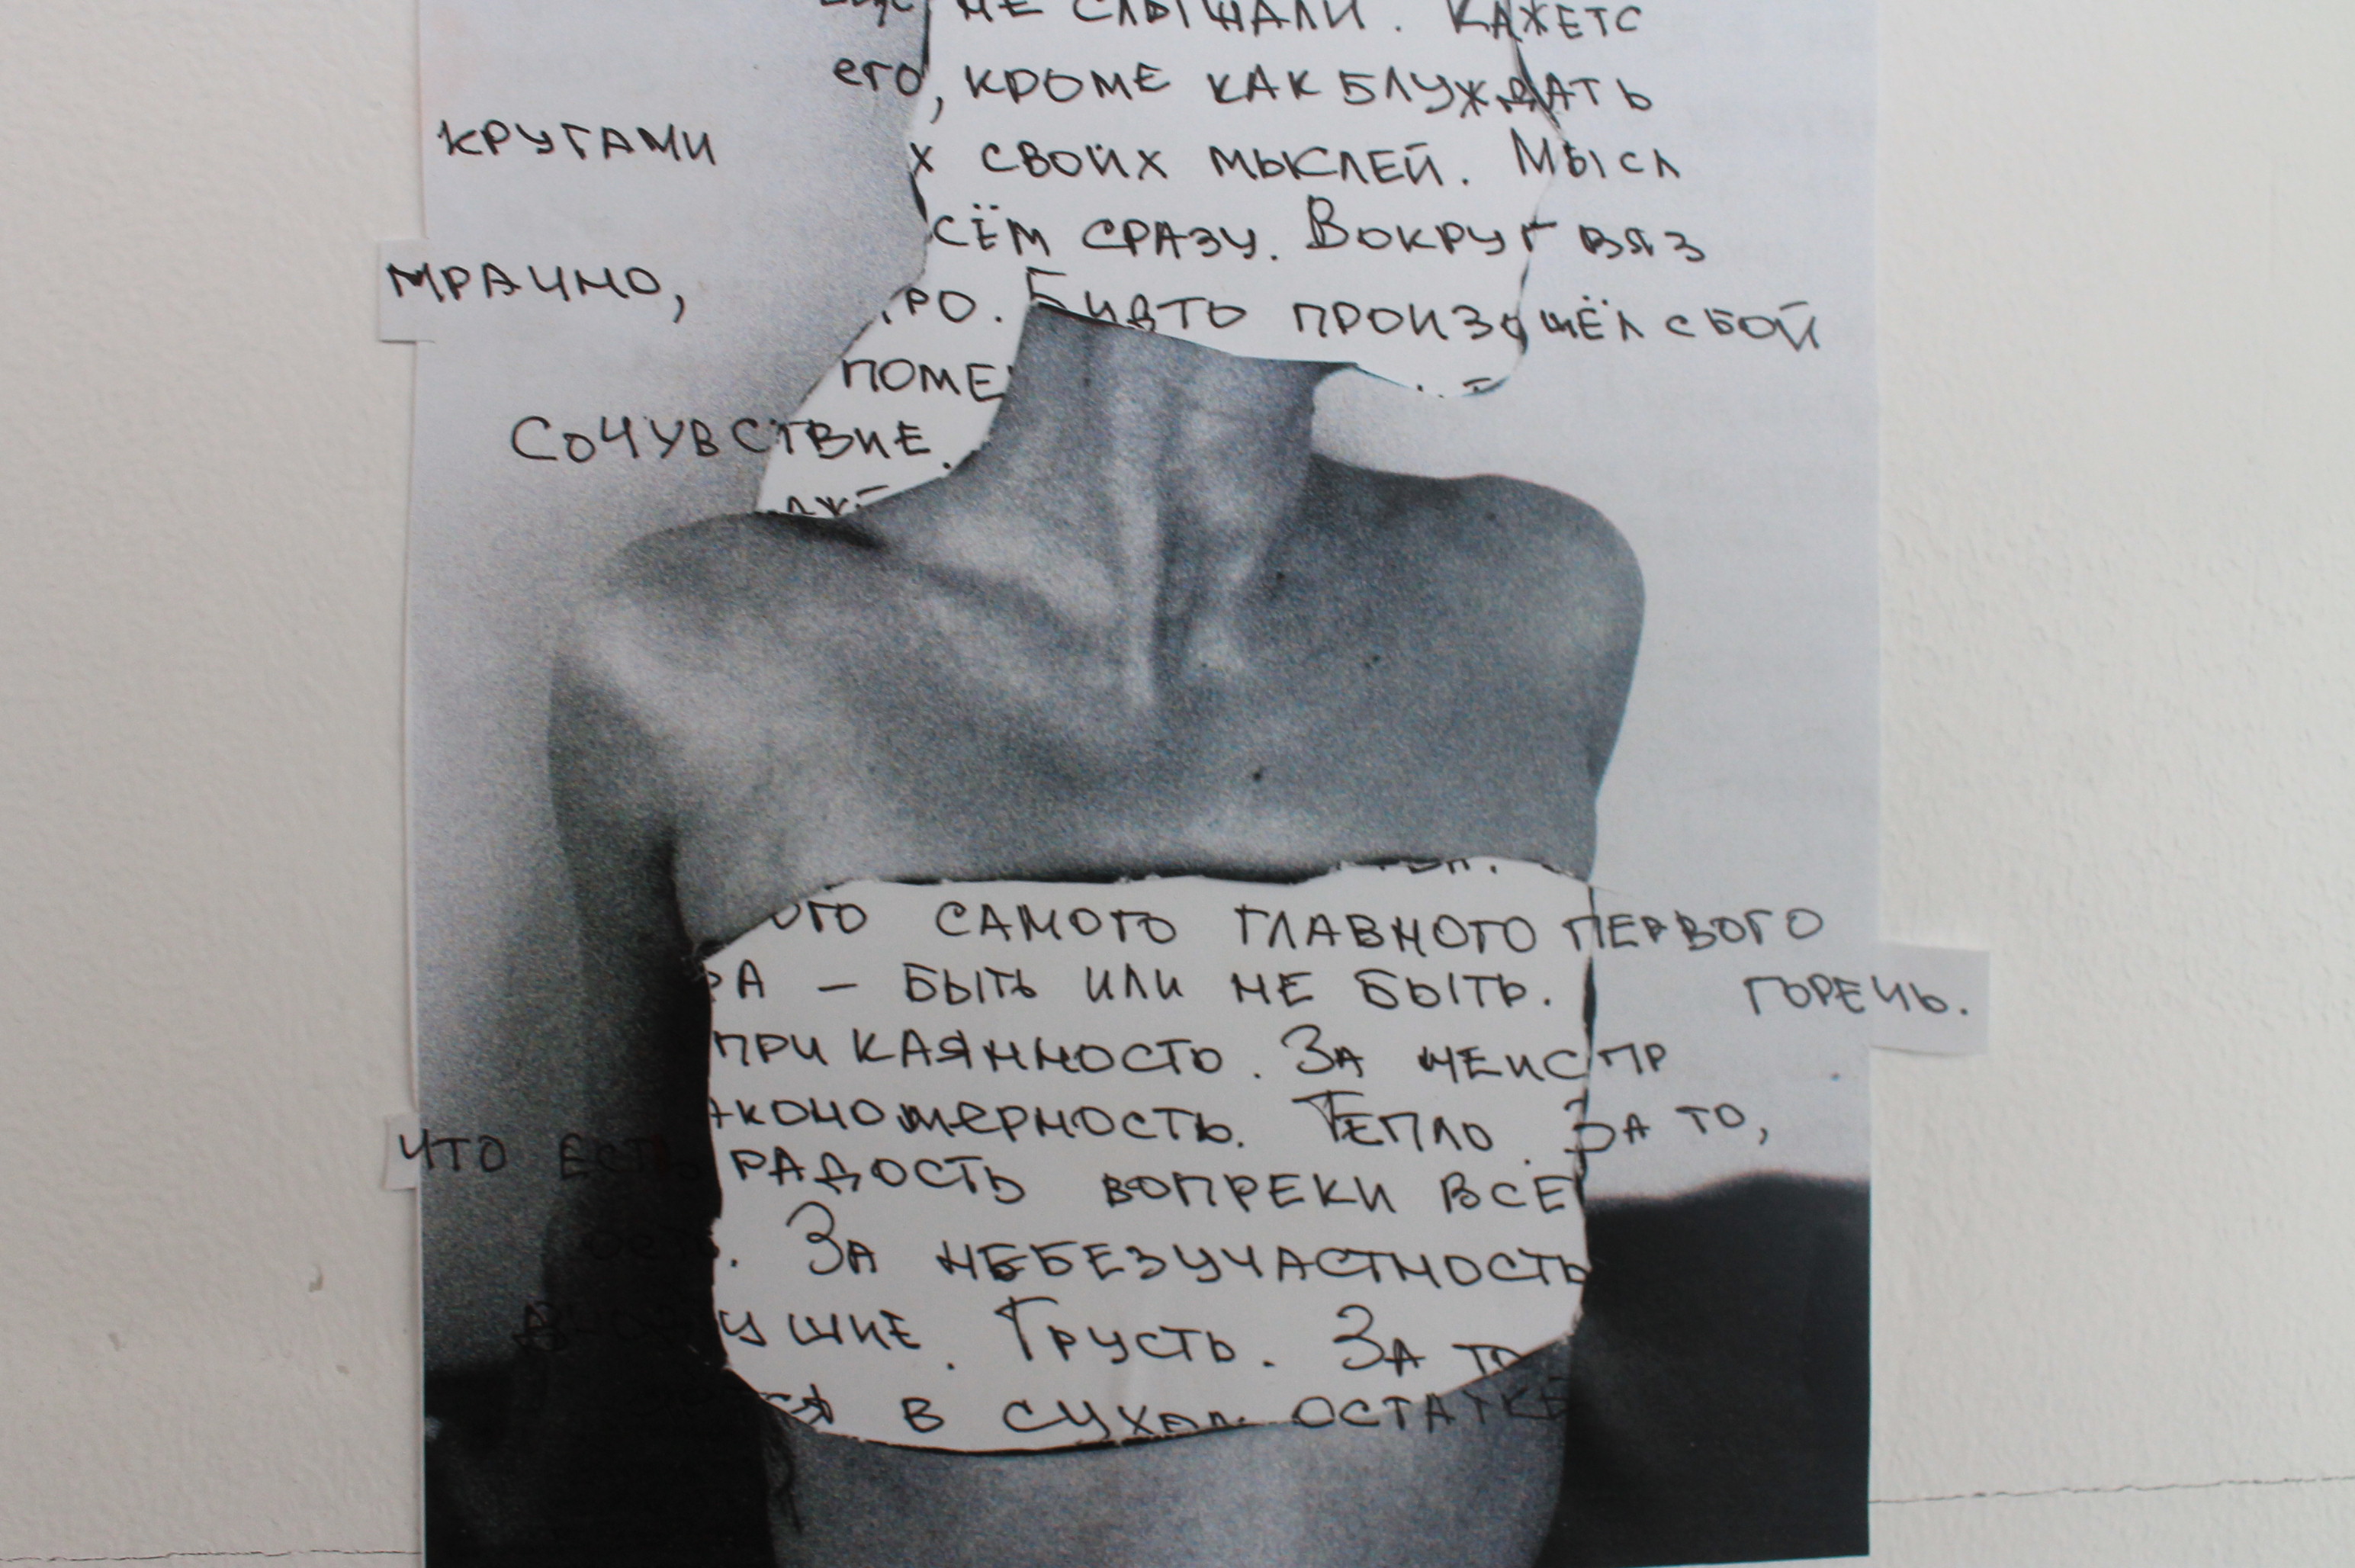 НЕ СЛЫШАЛИ. КАЖЕТС
его, КРОМЕ КАК БЛУЖДАТЬ
КРУГАМИ Х СВОИХ МЫСЛЕЙ. МЫСЛ
СЁМ СРАЗУ. ВОКРУГ ВЯЗ
МРАЧНО, РО. БУДТО ПРОИЗОШЁЛ СБОЙ
ПОМЕ
СОЧУВСТВИЕ.
ОГО САМОГО ГЛАВНОГО ПЕРВОГО
РА — БЫТЬ ИЛИ НЕ БЫТЬ. ГОРЕЧЬ.
ПРИКАЯННОСТЬ. ЗА НЕИСПР
АКОНОМЕРНОСТЬ. ТЕПЛО. ЗА ТО,
ЧТО ЕСТЬ РАДОСТЬ ВОПРЕКИ ВСЕ
. ЗА НЕБЕЗУЧАСТНОСТЬ
УШИЕ. ГРУСТЬ. ЗА ТО
СЯ В СУХОМ ОСТАТКЕ